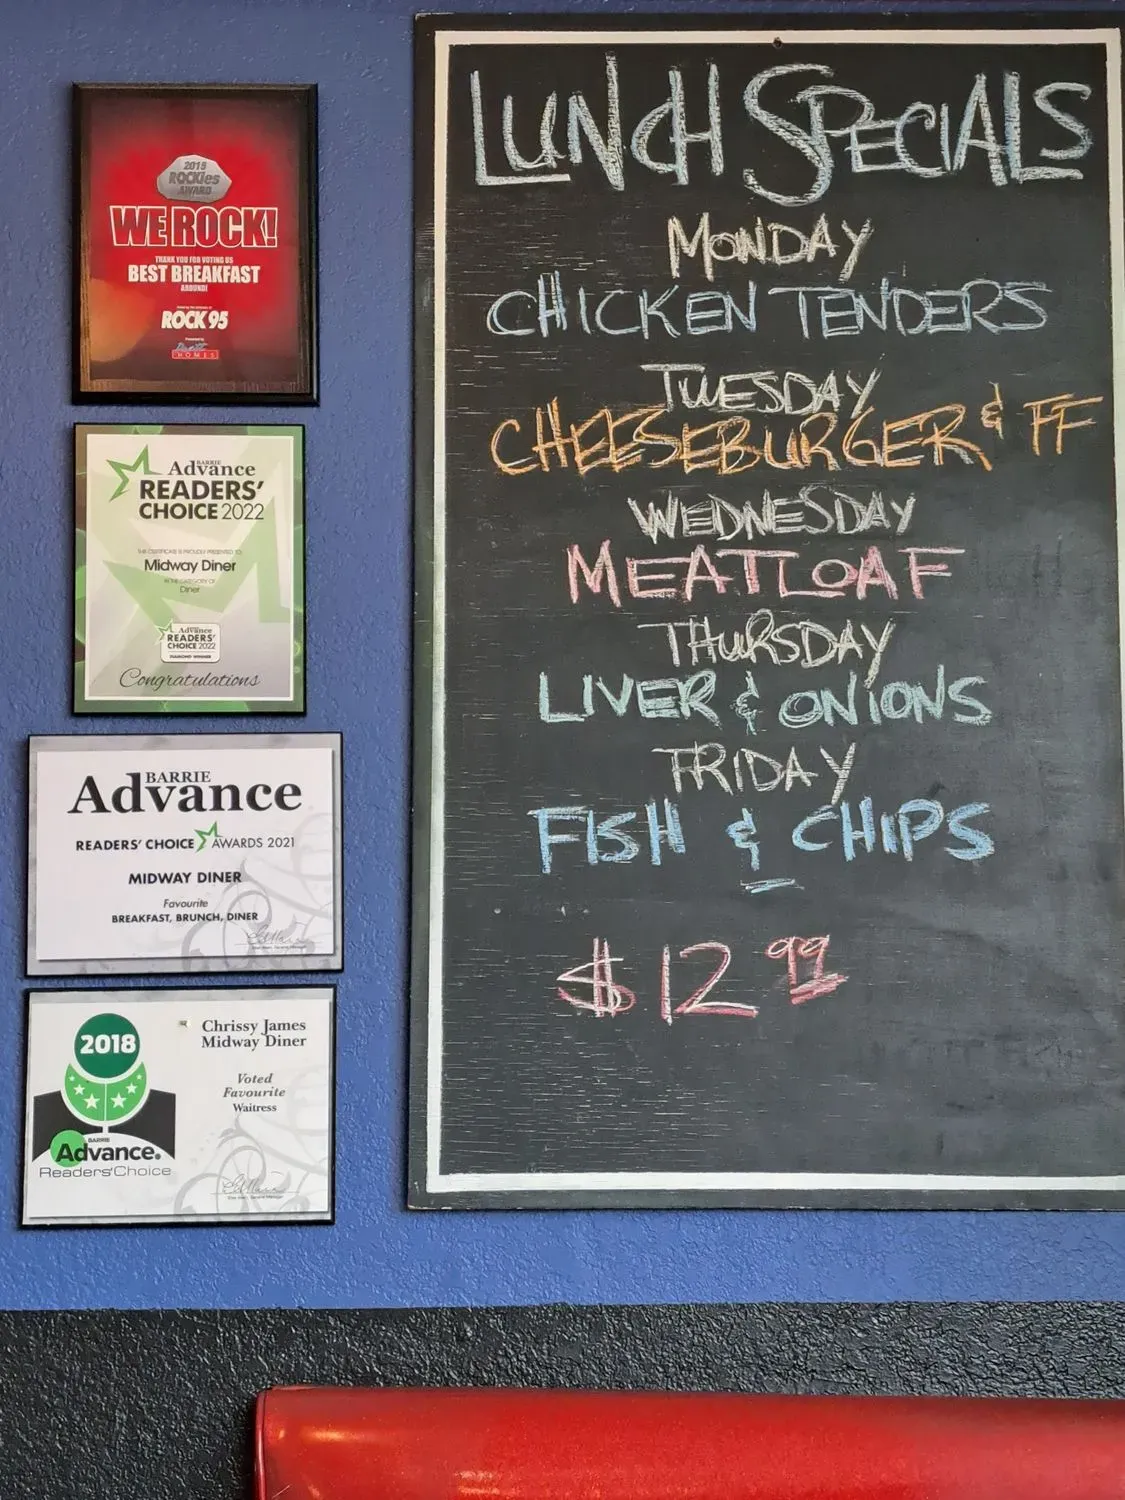 2015
ROCKies
AWARD
WE ROCK!
THANK YOU FOR VOTING US
BEST BREAKFAST
AROUND!
ROCK 95
Presented by
HOMES
BARRIE
Advance
READERS'
CHOICE 2022
THIS CERTIFICATE IS PROUDLY PRESENTED TO
Midway Diner
IN THE CATEGORY OF
Diner
Advance
READERS'
CHOICE 2022
DIAMOND WINNER
Congratulations
BARRIE
Advance
READERS' CHOICE AWARDS 2021
MIDWAY DINER
Favourite
BREAKFAST, BRUNCH, DINER
2018
BARRIE
Advance.
Readers'Choice
Chrissy James
Midway Diner
Voted
Favourite
Waitress
LUNCH SPECIALS
MONDAY
CHICKEN TENDERS
TUESDAY
CHEESEBURGER & FF
WEDNESDAY
MEATLOAF
THURSDAY
LIVER & ONIONS
FRIDAY
FISH & CHIPS
$12.99